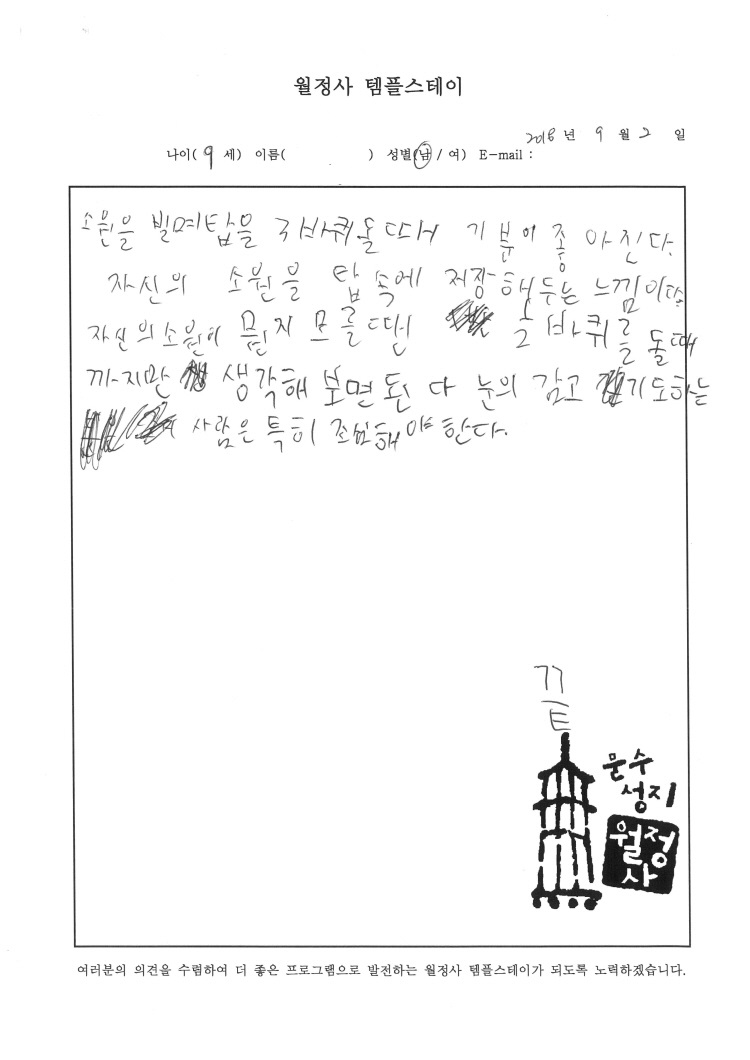 월정사 템플스테이
2018 년 9 월 2 일
나이( 9 세) 이름( ) 성별(남 / 여) E-mail :
소원을 빌며탑을 3바퀴돌때 기분이 좋아진다.
자신의 소원을 탑속에 저장해두는 느낌이다.
자신의소원이 뭔지 모를땐 놀바퀴를 돌때
까지만 생각해 보면된다 눈의 감고 기도하는
사람은 특히 조심해야한다.
끝
문수
성지
월정
사
여러분의 의견을 수렴하여 더 좋은 프로그램으로 발전하는 월정사 템플스테이가 되도록 노력하겠습니다.